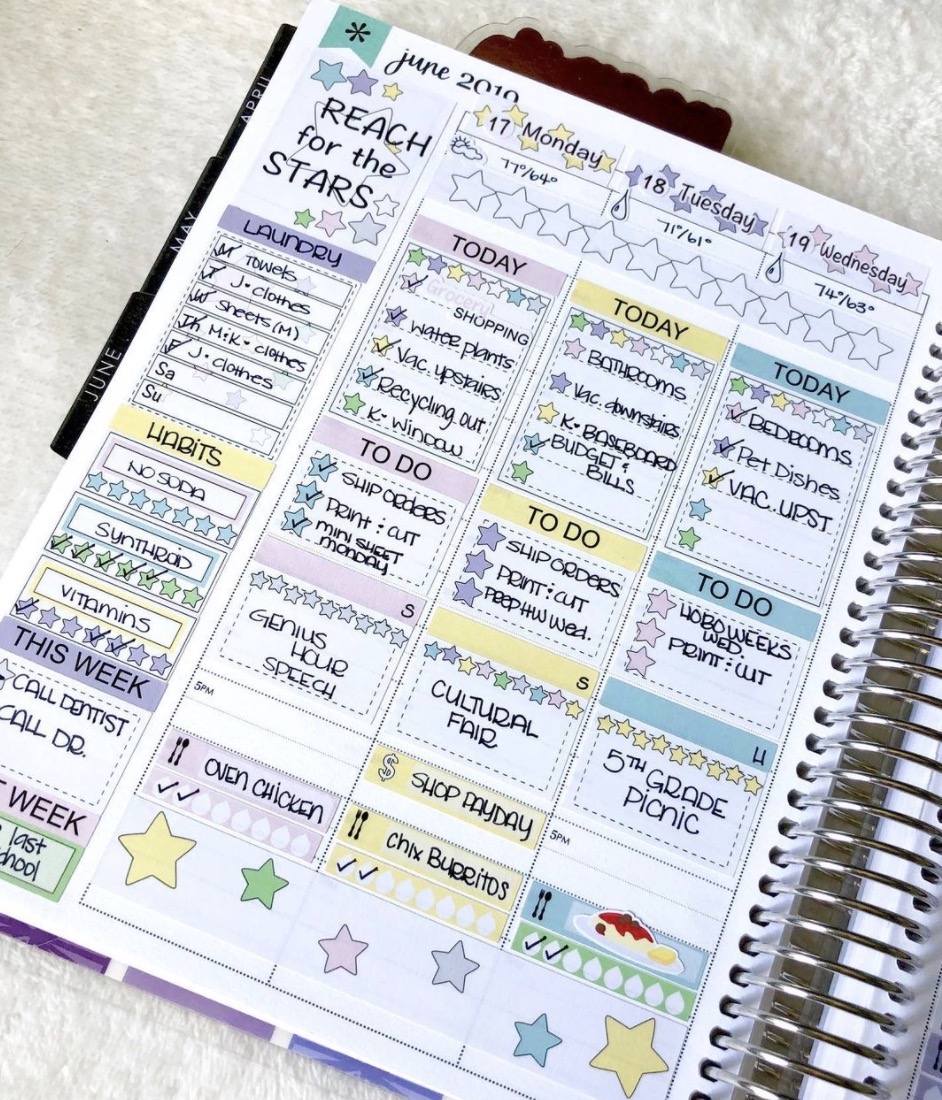 APRIL
MAY
JUNE
*
june 2019
REACH
for the
STARS
LAUNDRY
M Towels
T J. clothes
W Sheets (M)
Th M:K. clothes
F J. clothes
Sa
Su
HABITS
NO SODA
SYNTHROID
VITAMINS
THIS WEEK
CALL DENTIST
CALL DR.
T WEEK
last
chool
17 Monday
77°/64°
TODAY
Grocery
SHOPPING
water plants
Vac. upstairs
Recycling out
K. window
TO DO
SHIP ORDERS
PRINT : CUT
MINI SHEET
MONDAY
S
GENIUS
HOUR
SPEECH
5PM
OVEN CHICKEN
18 Tuesday
71°/61°
TODAY
BATHROOMS
Vac. downstairs
K. BASEBOARD
BUDGET &
BILLS
TO DO
SHIP ORDERS
PRINT : CUT
PREP HW Wed.
S
CULTURAL
FAIR
$ SHOP PAYDAY
Chix BURRITOS
19 Wednesday
74°/63°
TODAY
BEDROOMS
Pet Dishes
VAC. UPST
TO DO
HOBO WEEKS
WED
PRINT : CUT
5TH GRADE
PICNIC
5PM